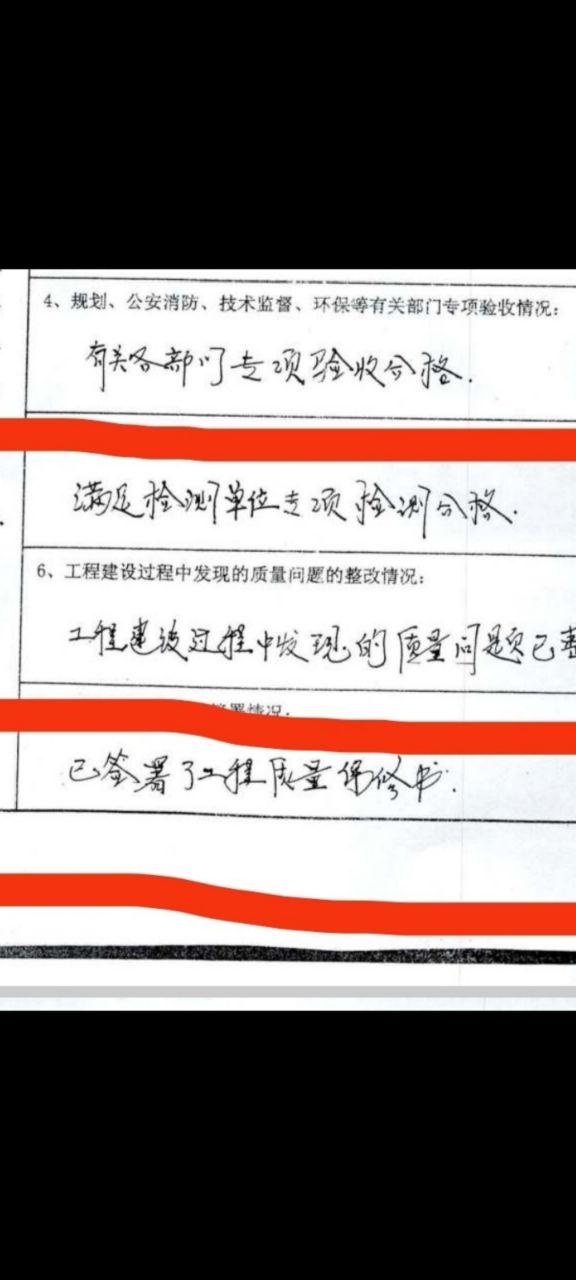 4、规划、公安消防、技术监督、环保等有关部门专项验收情况:
有关各部门专项验收合格.
满足检测单位专项检测合格.
6、工程建设过程中发现的质量问题的整改情况:
工程建设过程中发现的质量问题已整
署情况.
已签署了工程质量保修书.